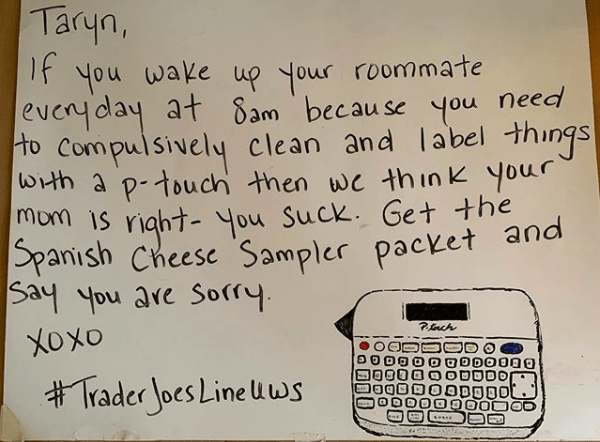 Taryn,
If you wake up your roommate
everyday at 8am because you need
to compulsively clean and label things
with a p-touch then we think your
mom is right- you suck. Get the
Spanish Cheese Sampler packet and
say you are sorry.
XOXO
#TraderJoesLineUWS
P-touch